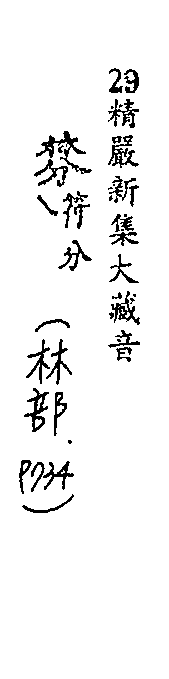 29精嚴新集大藏音
符分(林部.P734)